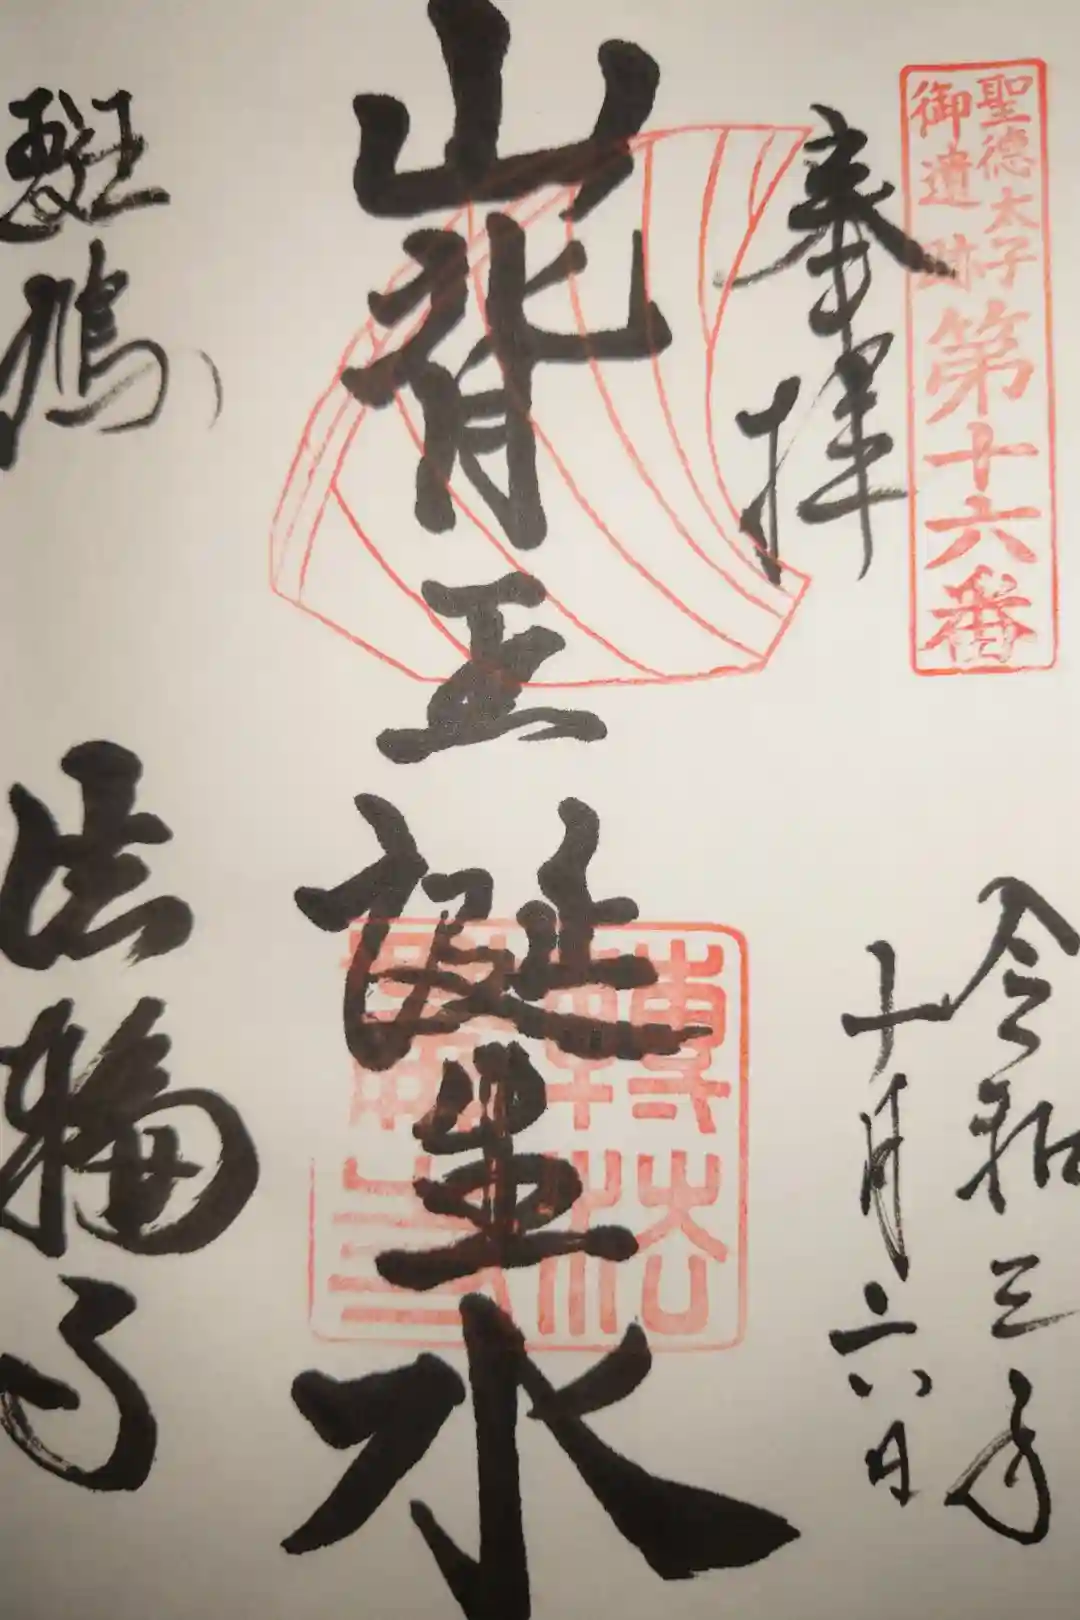 聖徳太子
御遺跡
第十六番
奉拝
令和三年
十月六日
山背王誕生水
斑鳩
法輪寺